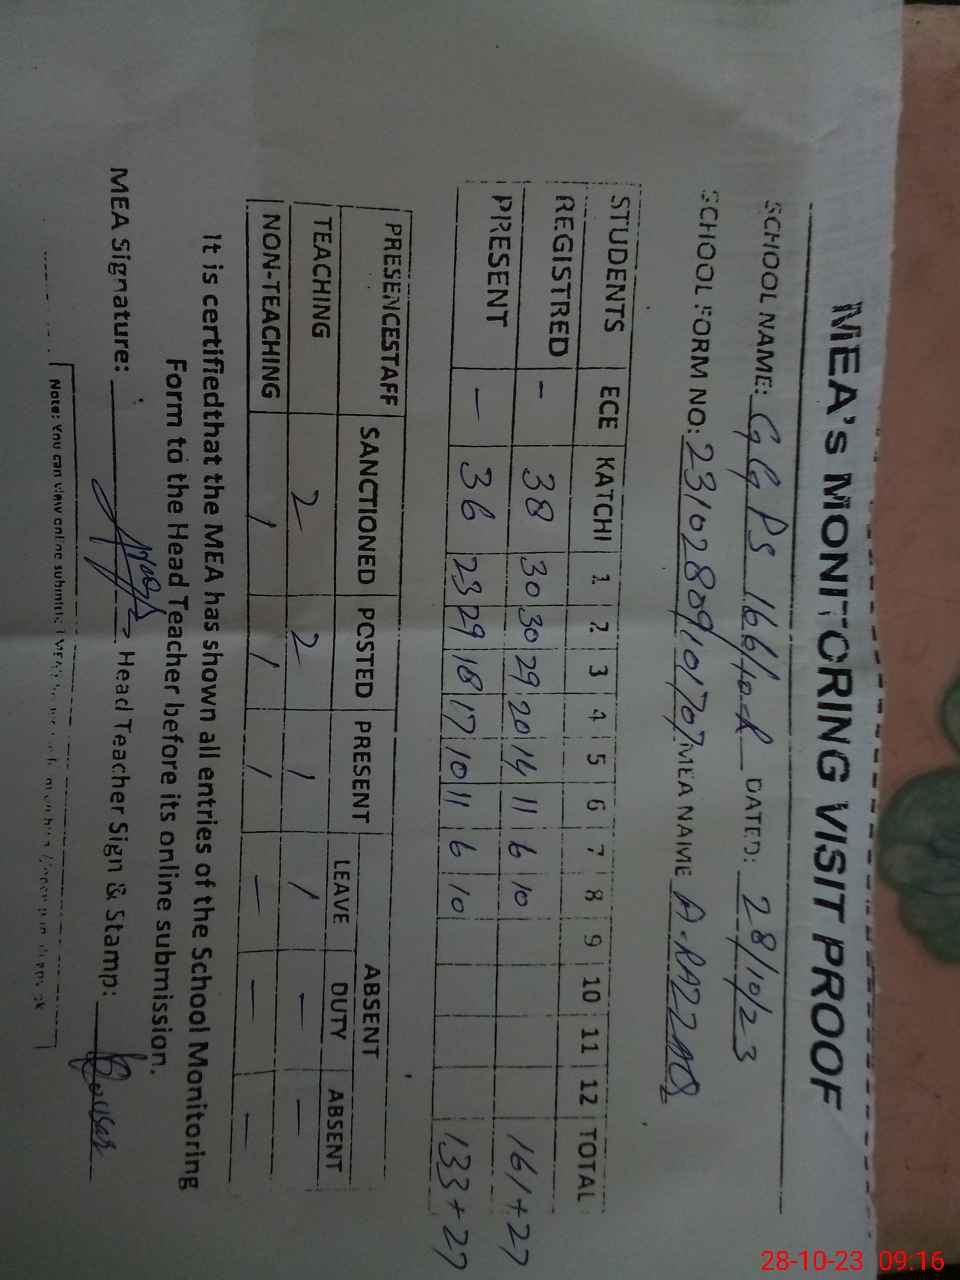 MEA's MONITORING VISIT PROOF
SCHOOL NAME: GGPS 166/10-R DATED: 28/10/23
SCHOOL FORM NO: 23102809101707 MEA NAME A.RAZZAQ
STUDENTS ECE KATCHI 1 2 3 4 5 6 7 8 9 10 11 12 TOTAL
REGISTRED - 38 30 30 29 20 14 11 6 10 161+27
PRESENT - 36 23 29 18 17 10 11 6 10 133+27
PRESENCESTAFF SANCTIONED POSTED PRESENT ABSENT
LEAVE DUTY ABSENT
TEACHING 2 2 1 1 - -
NON-TEACHING 1 1 1 - - -
It is certifiedthat the MEA has shown all entries of the School Monitoring
Form to the Head Teacher before its online submission.
MEA Signature: Head Teacher Sign & Stamp: Kousar
Note: You can view online
28-10-23 09:16